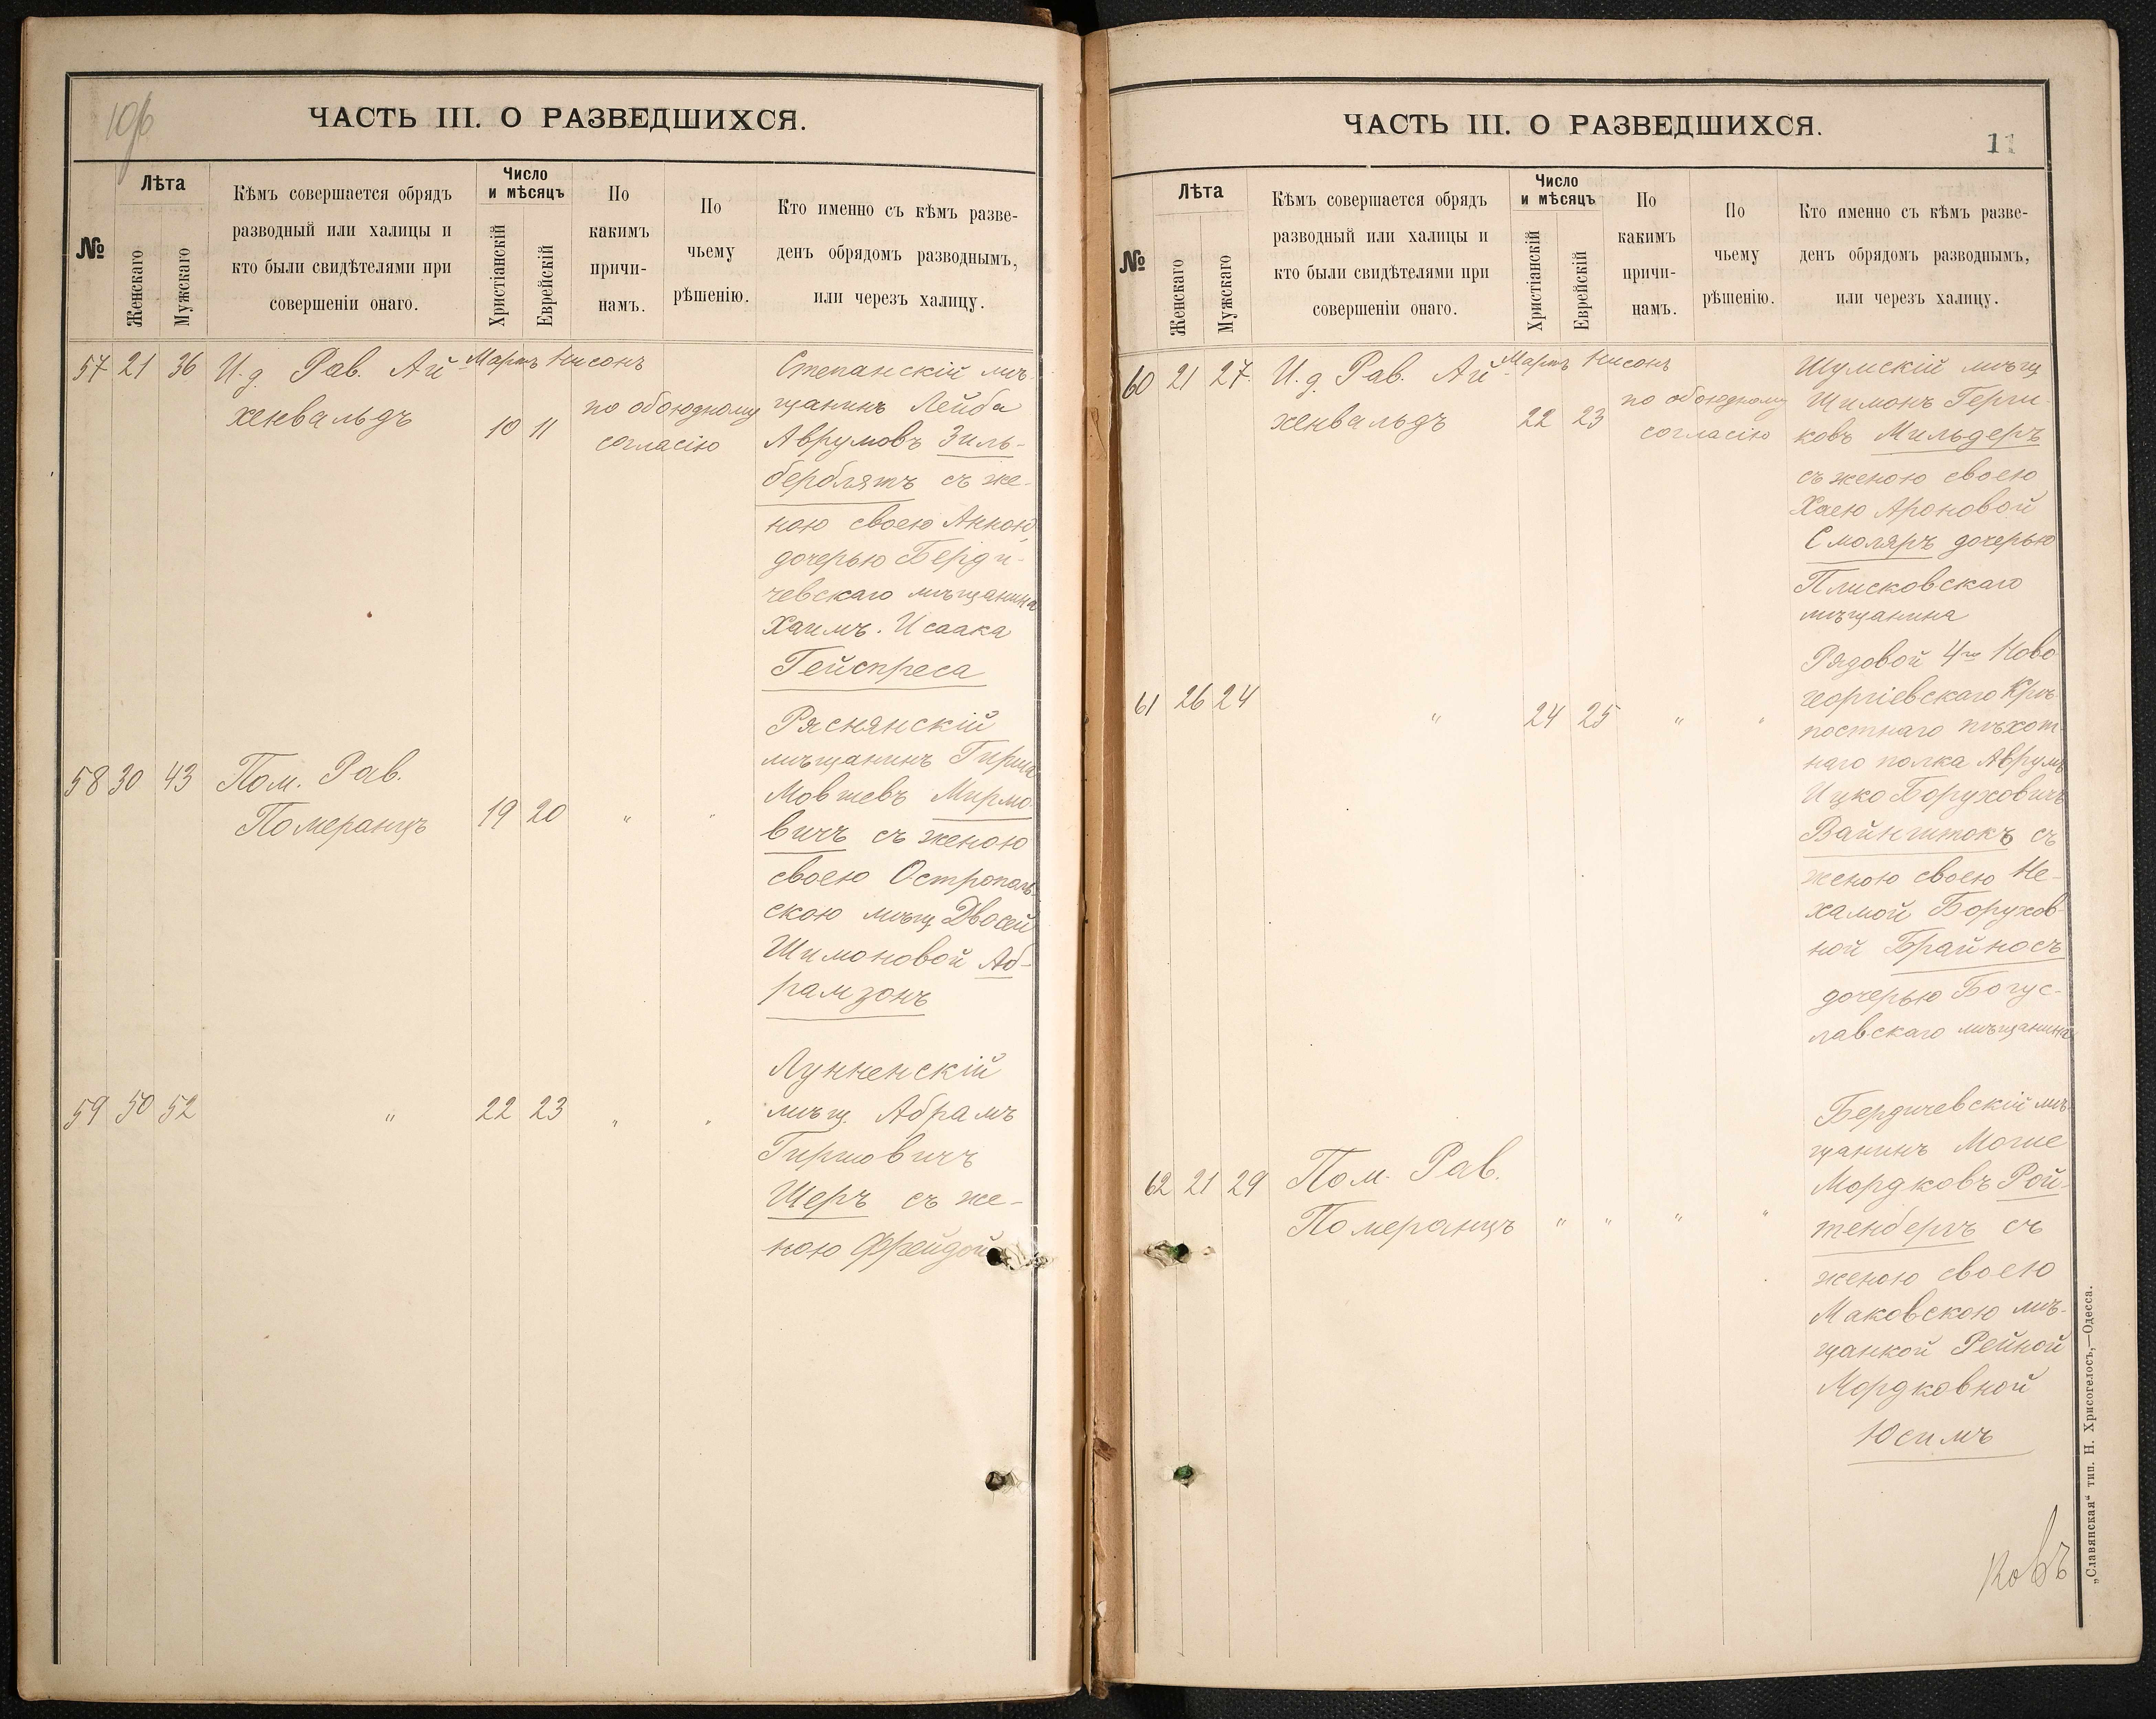 10об
ЧАСТЬ III. О РАЗВЕДШИХСЯ.
№
Лѣта
Женскаго
Мужскаго
Кѣмъ совершается обрядъ
разводный или халицы и
кто были свидѣтелями при
совершеніи онаго.
Число
и мѣсяцъ
Христіанскій
Еврейскій
По
какимъ
причи-
намъ.
По
чьему
рѣшенію.
Кто именно съ кѣмъ разве-
денъ обрядомъ разводнымъ,
или черезъ халицу.
57 21 36 И. д. Рав. Ай-
хенвальдъ
Мартъ Нисонъ
10 11
по обоюдному
согласію
Степанскій мѣ-
щанинъ Лейба
Аврумовъ Зиль-
берблятъ съ же-
ною своею Анною,
дочерью Берди-
чевскаго мѣщанина
Хаимъ. Исаака
Гейспреса
58 30 43 Пом. Рав.
Померанцъ
19 20 " "
Ряснянскій
мѣщанинъ Гирша
Мовшевъ Мирмо-
вичъ съ женою
своею Острополь-
скою мѣщ. Двосей
Шимоновой Аб-
рамзонъ
59 50 52 " 22 23 " "
Лунненскій
мѣщ. Абрамъ
Гиршовичъ
Шеръ съ же-
ною Фрейдой
ЧАСТЬ III. О РАЗВЕДШИХСЯ.
11
№
Лѣта
Женскаго
Мужскаго
Кѣмъ совершается обрядъ
разводный или халицы и
кто были свидѣтелями при
совершеніи онаго.
Число
и мѣсяцъ
Христіанскій
Еврейскій
По
какимъ
причи-
намъ.
По
чьему
рѣшенію.
Кто именно съ кѣмъ разве-
денъ обрядомъ разводнымъ,
или черезъ халицу.
60 21 27 И. д. Рав. Ай-
хенвальдъ
Мартъ Нисонъ
22 23
по обоюдному
согласію
Шумскій мѣщ
Шимонъ Герш-
ковъ Мильдеръ
съ женою своею
Хаею Ароновой
Смоляръ дочерью
Плисковскаго
мѣщанина
61 26 24 " 24 25 " "
Рядовой 4го Ново
георгіевскаго Крѣ-
постнаго пѣхот-
наго полка Аврумъ
Ицко Боруховичъ
Вайнштокъ съ
женою своею Не-
хамой Борухов-
ной Брайносъ
дочерью Богус-
лавскаго мѣщанина
62 21 29 Пом. Рав.
Померанцъ " " " "
Бердичевскій мѣ-
щанинъ Моше
Мордковъ Рой-
тенбергъ съ
женою своею
Маковскою мѣ-
щанкой Рейной
Мордковной
Юсимъ
ковъ
„Славянская“ тип. Н. Хрисогелосъ,—Одесса.